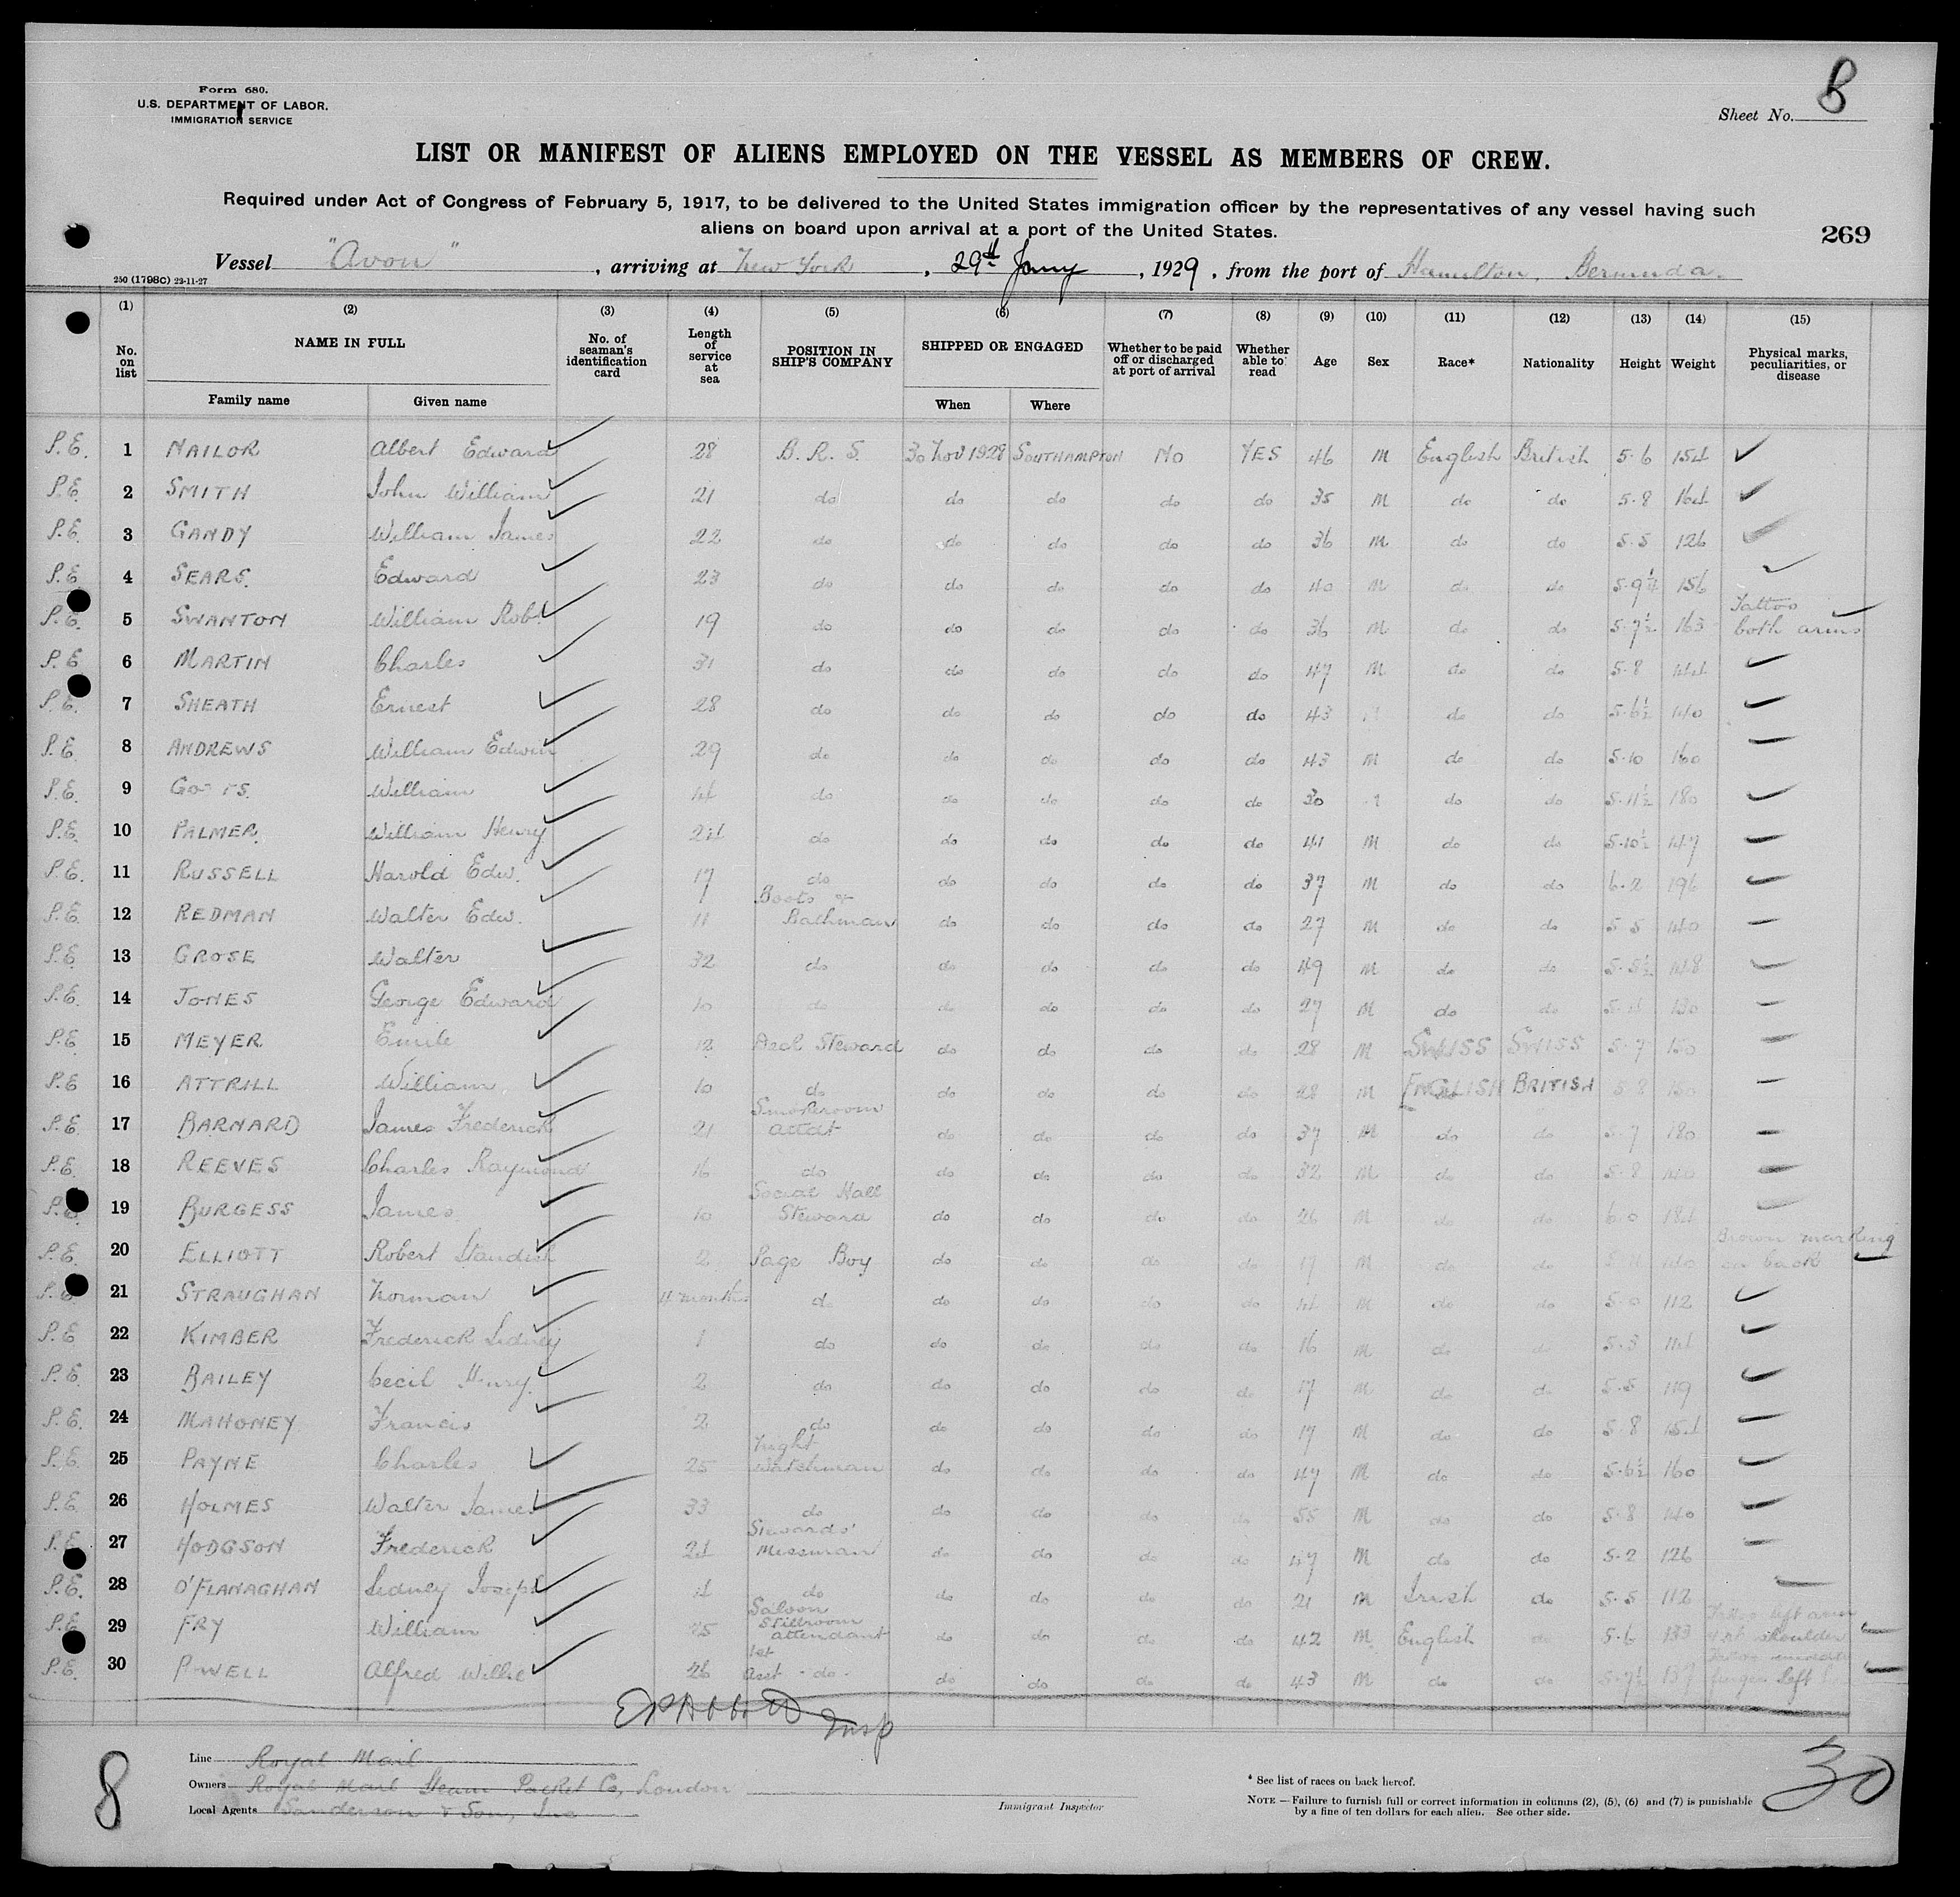 Form 680.
U.S. DEPARTMENT OF LABOR.
IMMIGRATION SERVICE
Sheet No. 8
LIST OR MANIFEST OF ALIENS EMPLOYED ON THE VESSEL AS MEMBERS OF CREW.
Required under Act of Congress of February 5, 1917, to be delivered to the United States immigration officer by the representatives of any vessel having such
aliens on board upon arrival at a port of the United States.
269
Vessel "Avon", arriving at New York, 29th Jany, 1929, from the port of Hamilton, Bermuda.
250 (1798c) 22-11-27
(1) (2) (3) (4) (5) (6) (7) (8) (9) (10) (11) (12) (13) (14) (15)
No. on list NAME IN FULL Family name Given name No. of seaman's identification card Length of service at sea POSITION IN SHIP'S COMPANY SHIPPED OR ENGAGED When Where Whether to be paid off or discharged at port of arrival Whether able to read Age Sex Race* Nationality Height Weight Physical marks, peculiarities, or disease
P.E. 1 NAILOR Albert Edward 28 B. R. S. 30 Nov 1928 SOUTHAMPTON NO YES 46 M English British 5.6 154
P.E. 2 SMITH John William 21 do do do do do 35 M do do 5.8 164
P.E. 3 GANDY William James 22 do do do do do 36 M do do 5.5 126
P.E. 4 SEARS. Edward 23 do do do do do 40 M do do 5.9½ 156
P.E. 5 SWANTON William Robt 19 do do do do do 36 M do do 5.7½ 163 Tattoo both arms
P.E. 6 MARTIN Charles 31 do do do do do 47 M do do 5.8 144
P.E. 7 SHEATH Ernest 28 do do do do do 43 do do 5.6½ 140
P.E. 8 ANDREWS William Edwin 29 do do do do do 43 M do do 5.10 160
P.E. 9 William 14 do do do do do 30 do do 5.11½ 180
P.E. 10 PALMER. William Henry 24 do do do do do 41 M do do 5.10½ 147
P.E. 11 RUSSELL Harold Edw. 17 do do do do do 37 M do do 6.2 196
P.E. 12 REDMAN Walter Edw. 11 Boots & Bathman do do do do 27 M do do 5.5 140
P.E. 13 GROSE Walter 32 do do do do do 49 M do do 5.5½ 148
P.E. 14 JONES George Edward 10 do do do do do 27 M do do 130
P.E. 15 MEYER Emile 12 Deck Steward do do do do 28 M SWISS SWISS 5.7 150
P.E. 16 ATTRILL William 10 do do do do do 28 M ENGLISH BRITISH 5.8 150
P.E. 17 BARNARD James Frederick 21 Smokeroom attdt do do do do 37 M do do 5.7 180
P.E. 18 REEVES Charles Raymond 16 do do do do do 32 M do do 5.8 140
P.E. 19 BURGESS James 10 Social Hall Steward do do do do 26 M do do 6.0 184
P.E. 20 ELLIOTT Robert Standish 2 Page Boy do do do do 17 M do do 140 Brown marking on back
P.E. 21 STRAUGHAN Norman 4 months do do do do do M do do 5.0 112
P.E. 22 KIMBER Frederick Sidney 1 do do do do do 16 M do do 5.3 114
P.E. 23 BAILEY Cecil Henry. 2 do do do do do 17 M do do 5.5 119
P.E. 24 MAHONEY Francis 2 do do do do do 17 M do do 5.8 154
P.E. 25 PAYNE Charles 25 Night Watchman do do do do 47 M do do 5.6½ 160
P.E. 26 HOLMES Walter James 33 do do do do do 55 M do do 5.8 140
P.E. 27 HODGSON Frederick 21 Stewards' Messman do do do do 47 M do do 5.2 126
P.E. 28 O'FLANAGHAN Sidney Joseph 4 do do do do do 21 M Irish do 5.5 112
P.E. 29 FRY William 25 Saloon Stillroom attendant do do do do 42 M English do 5.6 133 Tattoo left arm shoulder
P.E. 30 POWELL Alfred Willie 26 1st Asst - do - do do do do 43 M do do 5.7½ 137 Tattoo middle finger left
Insp
8
Line Royal Mail
Owners Royal Mail Steam Packet Co, London
Local Agents Sanderson & Son, Inc
Immigrant Inspector
* See list of races on back hereof.
NOTE — Failure to furnish full or correct information in columns (2), (5), (6) and (7) is punishable
by a fine of ten dollars for each alien. See other side.
30